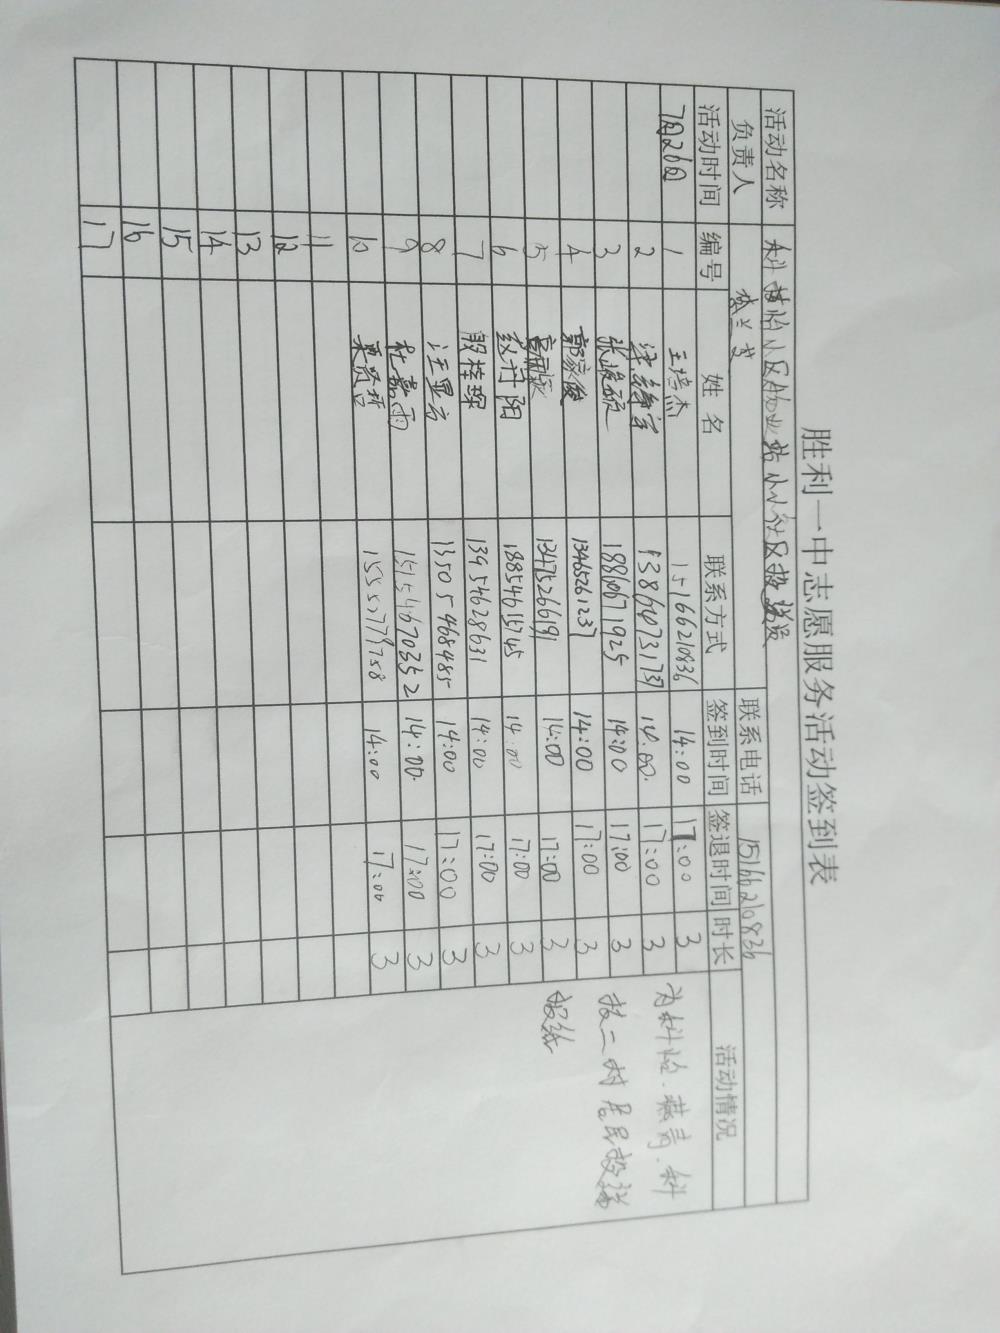 胜利一中志愿服务活动签到表
活动名称 科技怡小区物业站小小社区投递员
负责人 联系电话 15166210836
活动时间 编号 姓名 联系方式 签到时间 签退时间 时长 活动情况
7月26日 1 王培杰 15166210836 14:00 17:00 3 为科怡.燕青.科
2 13864731737 14:00 17:00 3
3 18860671925 14:00 17:00 3 技二村居民投送
4 郭家俊 13465261237 14:00 17:00 3
5 13475266191 14:00 17:00 3 报纸
6 丹阳 18854615745 14:00 17:00 3
7 殷梓琛 13954628631 14:00 17:00 3
8 汪显 13505468485 14:00 17:00 3
9 杜嘉雨 15154670352 14:00 17:00 3
10 栗贤哲 15557779758 14:00 17:00 3
11
12
13
14
15
16
17